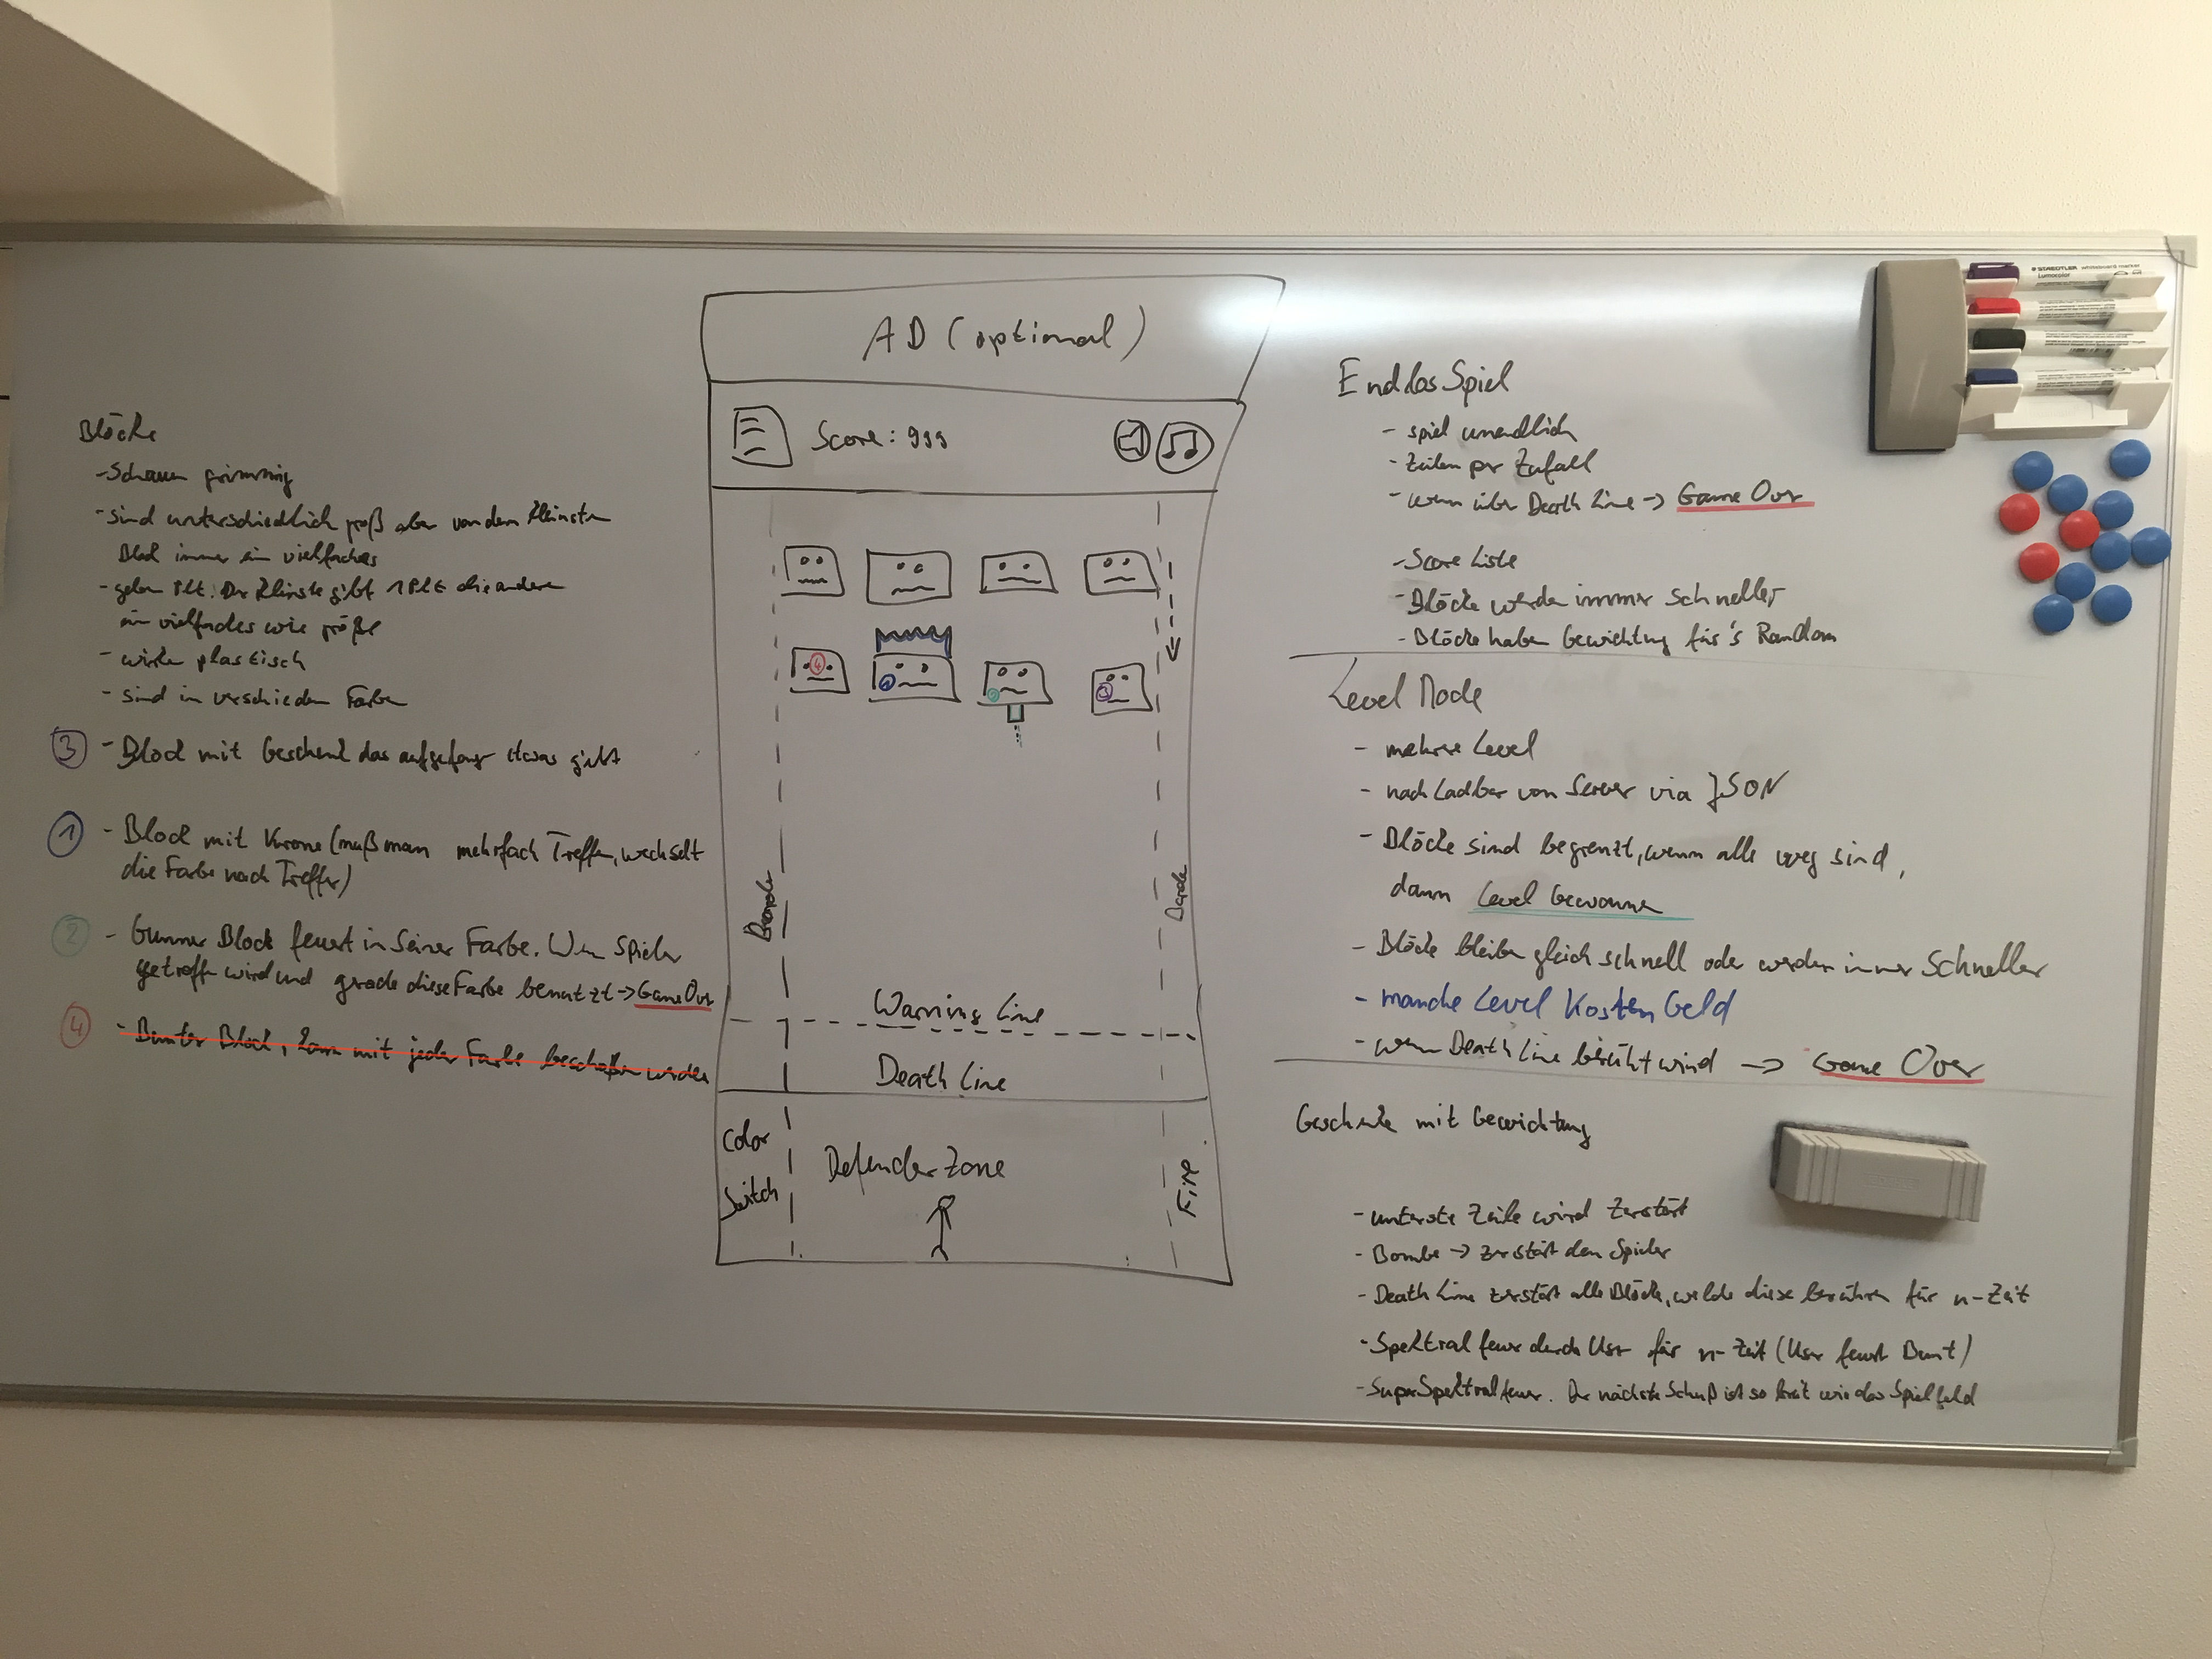 Blöcke
- Schauen grimmig
- sind unterschiedlich groß aber von dem kleinsten
Block immer ein vielfaches
- geben Pkt: Der kleinste gibt 1 Pkt die anderen
ein vielfaches wie größe
- wirken plastisch
- sind in verschieden Farben
3 - Block mit Geschenk das aufgefangen etwas gibt
1 - Block mit Krone (muß man mehrfach Treffen, wechselt
die Farbe nach Treffer)
2 - Gunner Block feuert in seiner Farbe. Wenn Spieler
getroffen wird und grade diese Farbe benutzt -> Game Over
4 - Bunter Block, kann mit jeder Farbe beschoßen werden
AD (optional)
Score: 999
4
1
2
3
Bande
Bande
Warning Line
Death Line
Color
Switch
Defender Zone
Fire
Endlos Spiel
- spiel unendlich
- Zeilen per Zufall
- wenn über Death Line -> Game Over
- Score Liste
- Blöcke werden immer schneller
- Blöcke haben Gewichtung für's Random
Level Mode
- mehrere Level
- nachladbar von Server via JSON
- Blöcke sind begrenzt, wenn alle weg sind,
dann Level Gewonnen
- Blöcke bleiben gleich schnell oder werden immer schneller
- manche Level Kosten Geld
- wenn Death Line berührt wird -> Game Over
Geschenke mit Gewichtung
- unterste Zeile wird Zerstört
- Bombe -> zerstört den Spieler
- Death Line zerstört alle Blöcke, welche diese berühren für n-Zeit
- Spektralfeuer durch User für n-Zeit (User feuert Bunt)
- SuperSpektralfeuer. Der nächste Schuß ist so breit wie das Spielfeld
STAEDTLER whiteboard marker
Lumocolor